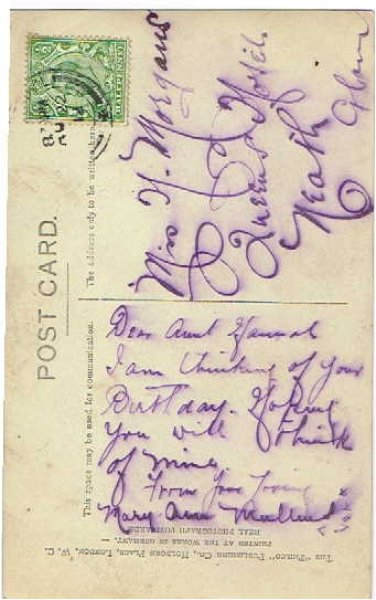 POST CARD.
The address only to be written here
This space may be used for communication.
Miss H. Morgans
Queens Hotel
Neath
Glam
Dear Aunt Hannah
I am thinking of your
Birthday. Hoping
you will think
of mine
From your loving
Mary Ann
The "Philco" Publishing Co., Holborn Place, London, W. C.
PRINTED AT THE WORKS IN GERMANY.
REAL PHOTOGRAPH